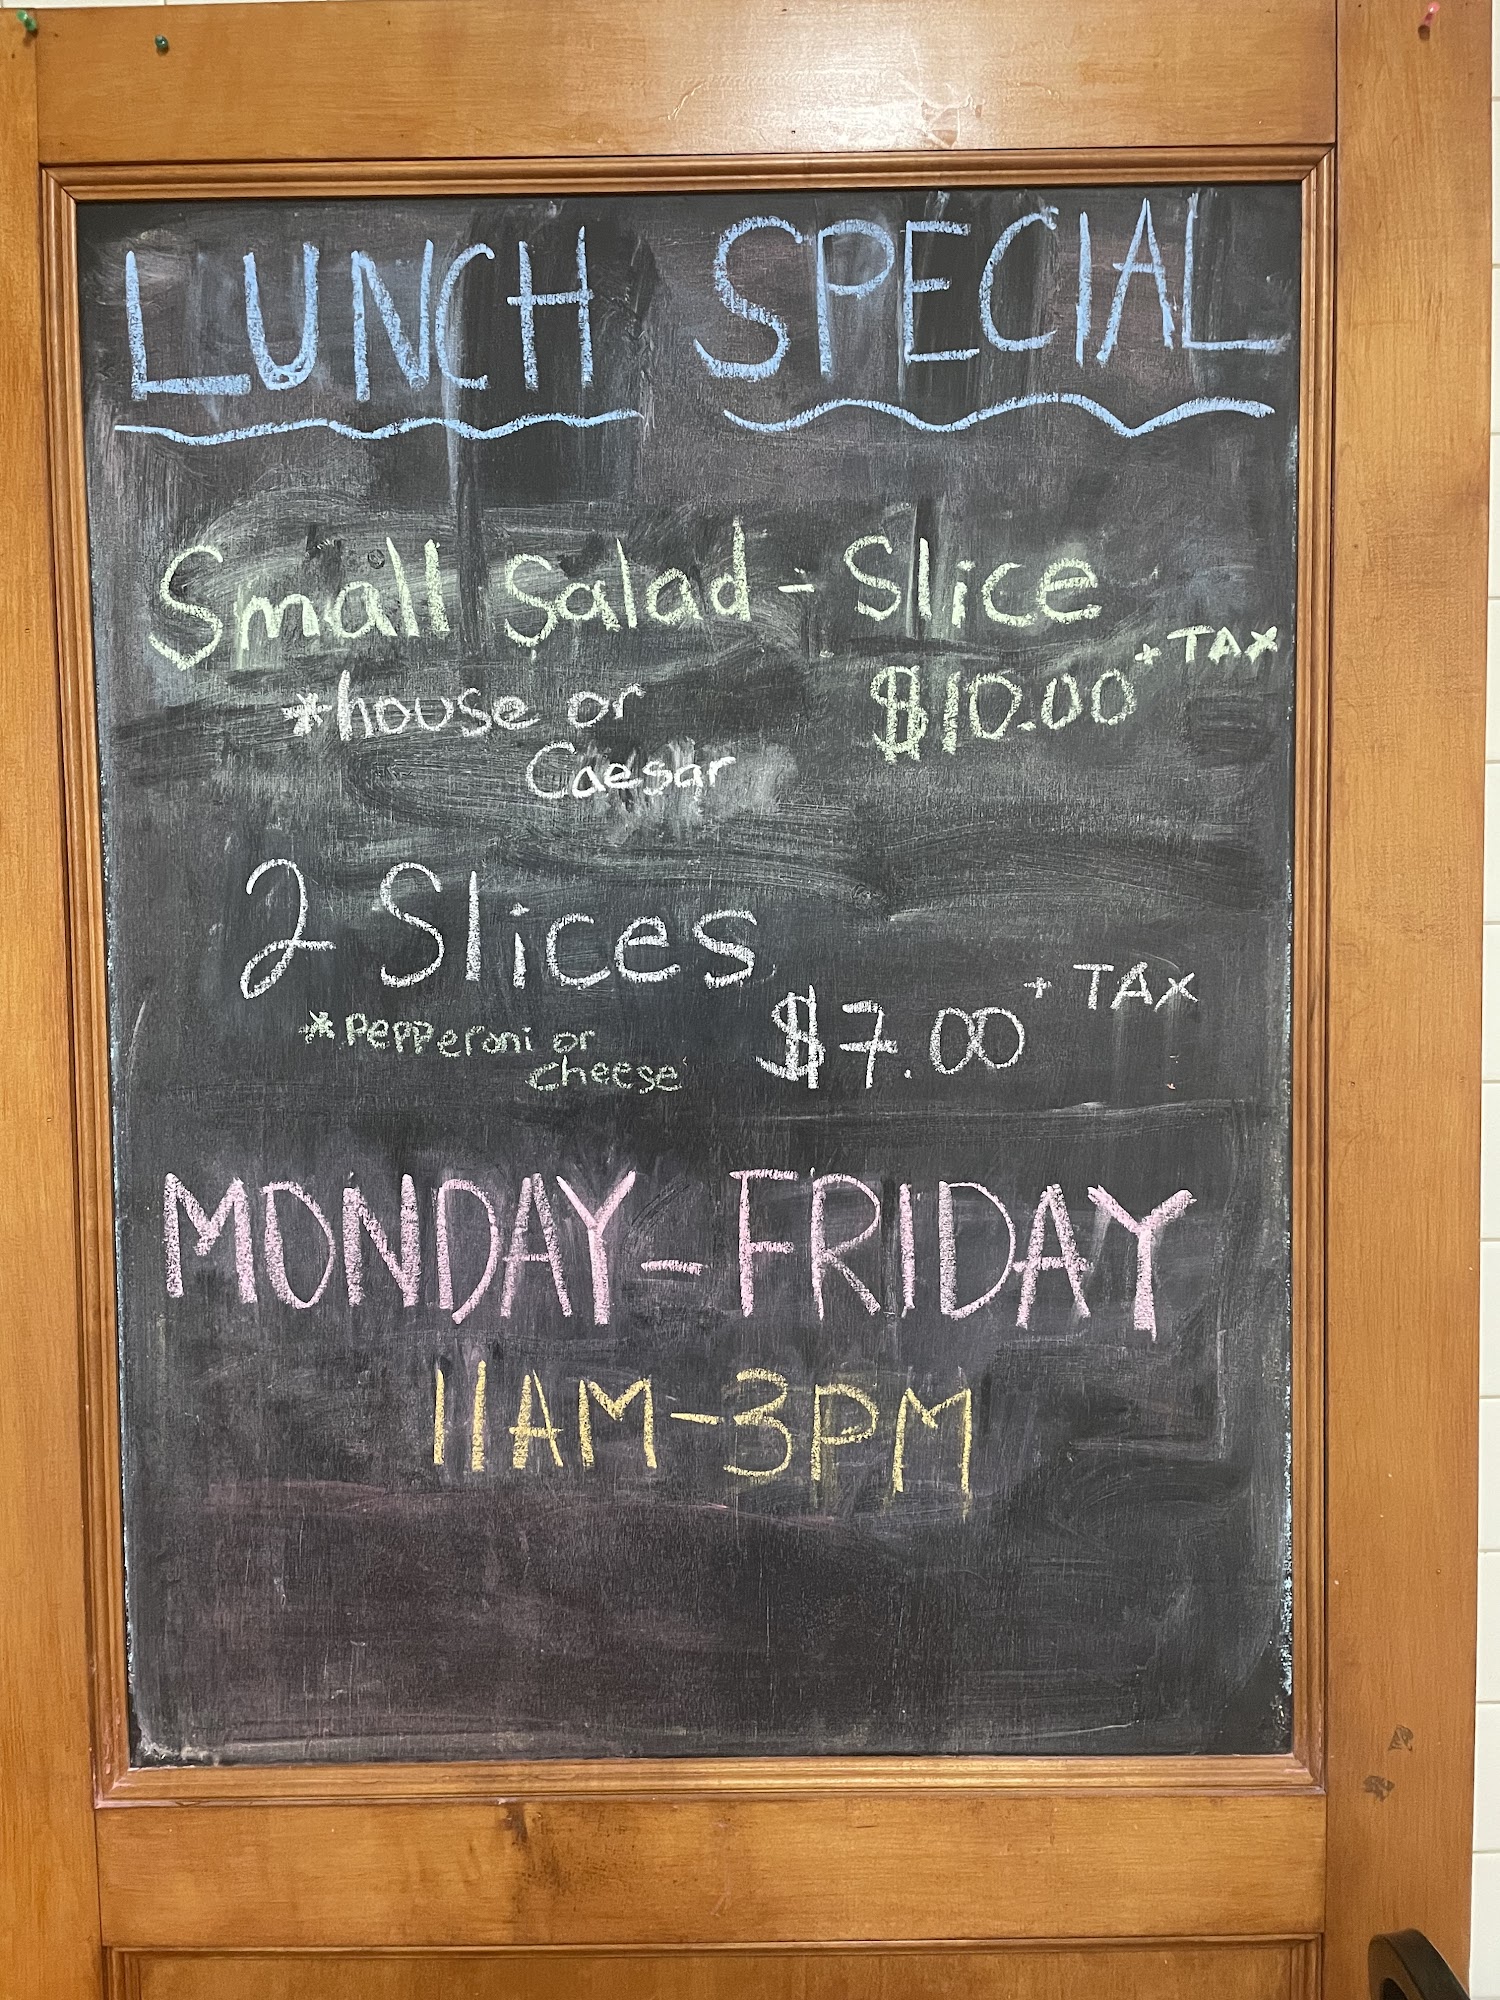 LUNCH SPECIAL
Small Salad - Slice
*house or
Caesar
$10.00 + TAX
2 Slices
*Pepperoni or
cheese
$7.00 + TAX
MONDAY-FRIDAY
11AM-3PM